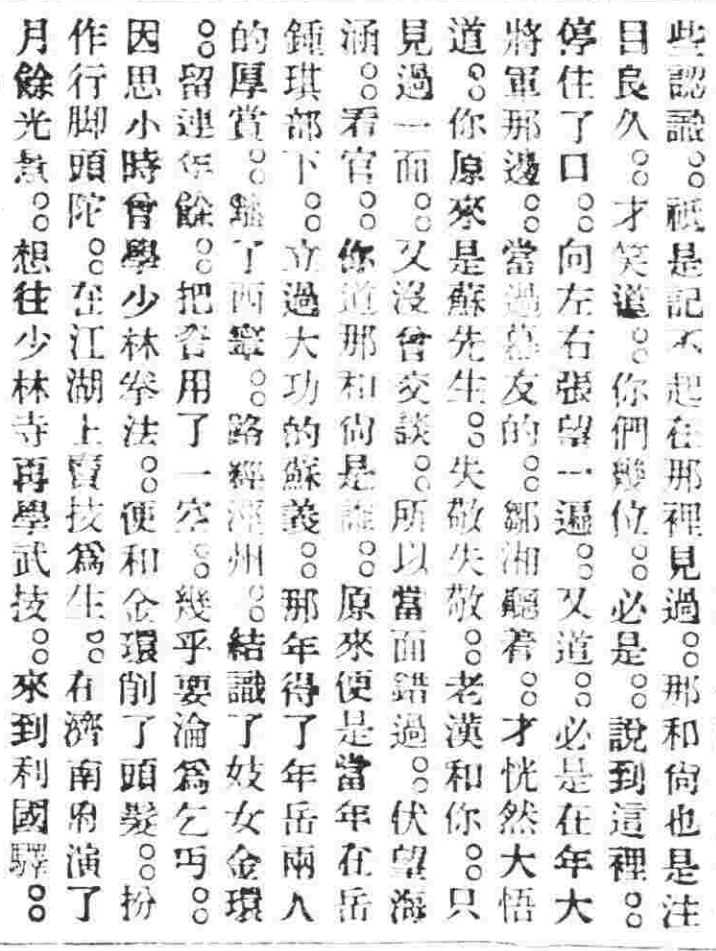 些認識。。祇是記不起在那裡見過。。那和尙也是注
目良久。。才笑道。。你們幾位。。必是。。說到這裡。。
停住了口。。向左右張望一遍。。又道。。必是在年大
將軍那邊。。當過幕友的。。鄒湘聽着。。才恍然大悟
道。。你原來是蘇先生。。失敬失敬。。老漢和你。。只
見過一面。。又沒曾交談。。所以當面錯過。。伏望海
涵。。看官。。你道那和尙是誰。。原來便是當年在岳
鍾琪部下。。立過大功的蘇義。。那年得了年岳兩人
的厚賞。。離了西寧。。路經涇州。。結識了妓女金環
。。留連年餘。。把資用了一空。。幾乎要淪爲乞丐。。
因思小時曾學少林拳法。。便和金環削了頭髮。。扮
作行脚頭陀。。在江湖上賣技爲生。。在濟南府演了
月餘光景。。想往少林寺再學武技。。來到利國驛。。